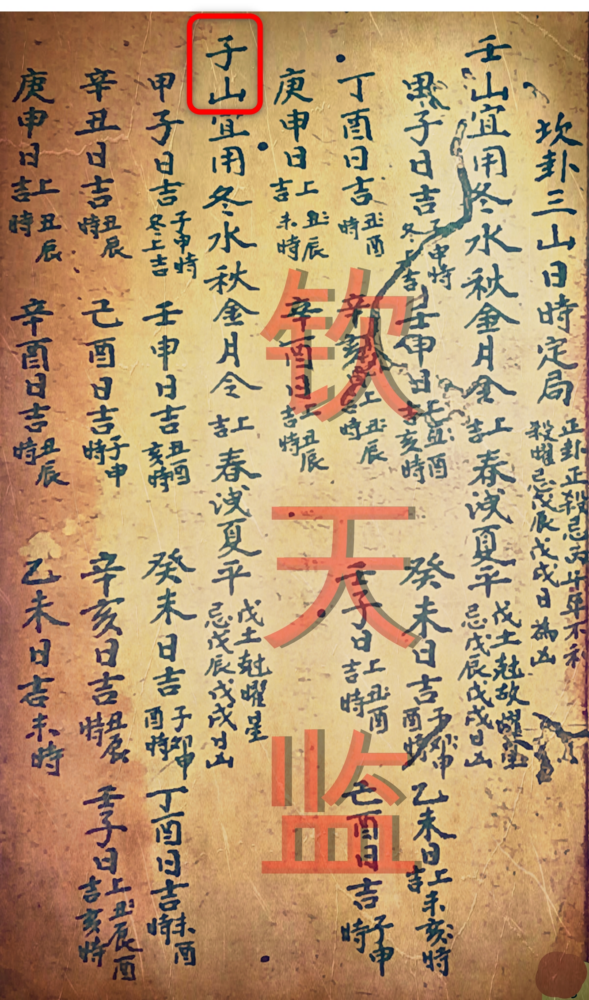 坎卦三山日時定局 正卦正殺忌丙午年不利 殺曜忌戊辰戊戌日為凶
壬山宜用冬水秋金月令 上吉 春洩夏平 戊土尅故曜星 忌戊辰戊戌日凶
甲子日吉 子申時 冬上吉 壬申日 吉 丑酉 亥時 癸未日吉 子卯申 酉時 乙未日 上未亥時 吉
丁酉日吉 丑酉 時 辛亥日 上丑辰 吉時 壬子日 上丑酉 吉時 己酉日吉 子申 時
庚申日 上丑辰 吉未時 辛酉日 上丑辰 吉時
子山宜用冬水秋金月令 上吉 春洩夏平 戊土尅曜星 忌戊辰戊戌日凶
甲子日吉 子申時 冬上吉 壬申日吉 丑酉 亥時 癸未日吉 子卯申 酉時 丁酉日吉 未酉 時
辛丑日吉 丑辰 時 己酉日吉 子申 時 辛亥日吉 丑辰 時 壬子日 上丑辰酉 吉亥時
庚申日 上丑辰 吉時 辛酉日吉 丑辰 時 乙未日吉 未時
钦天监